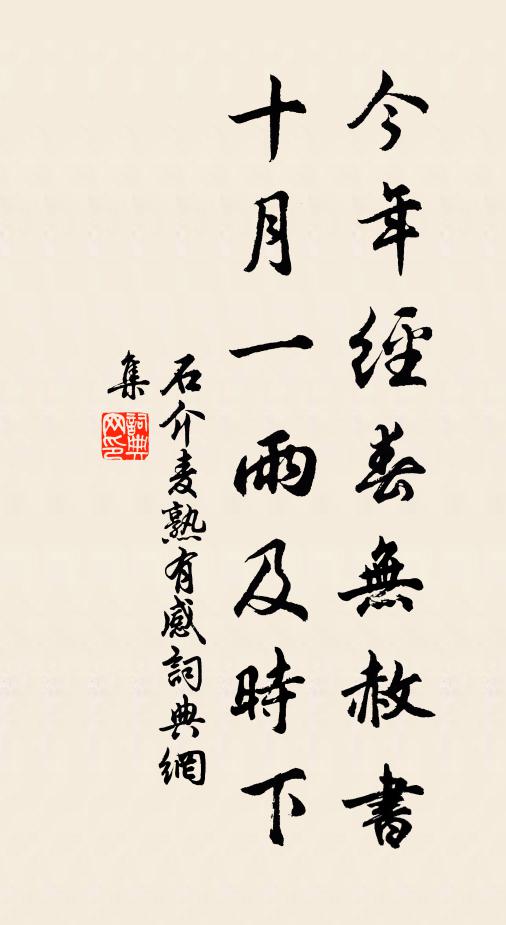 今年經春無赦書
十月一雨及時下
石介麦熟有感詞典網
集
詞典网印